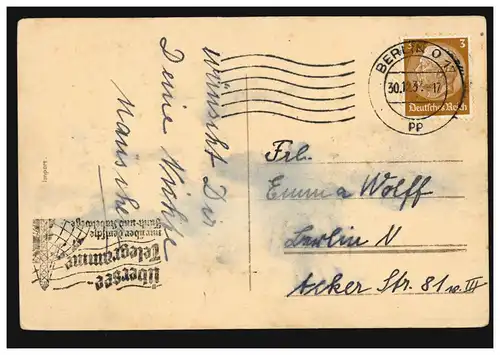 wünscht Dir
Deine
Mausche
BERLIN O
30.12.3
-17
PP
3
Deutsches Reich
Frl.
Emma Wolff
Berlin N
Acker Str. 81 III
Übersee-
Telegramme
nur über deutsche
Funk- und Kabelwege
Import